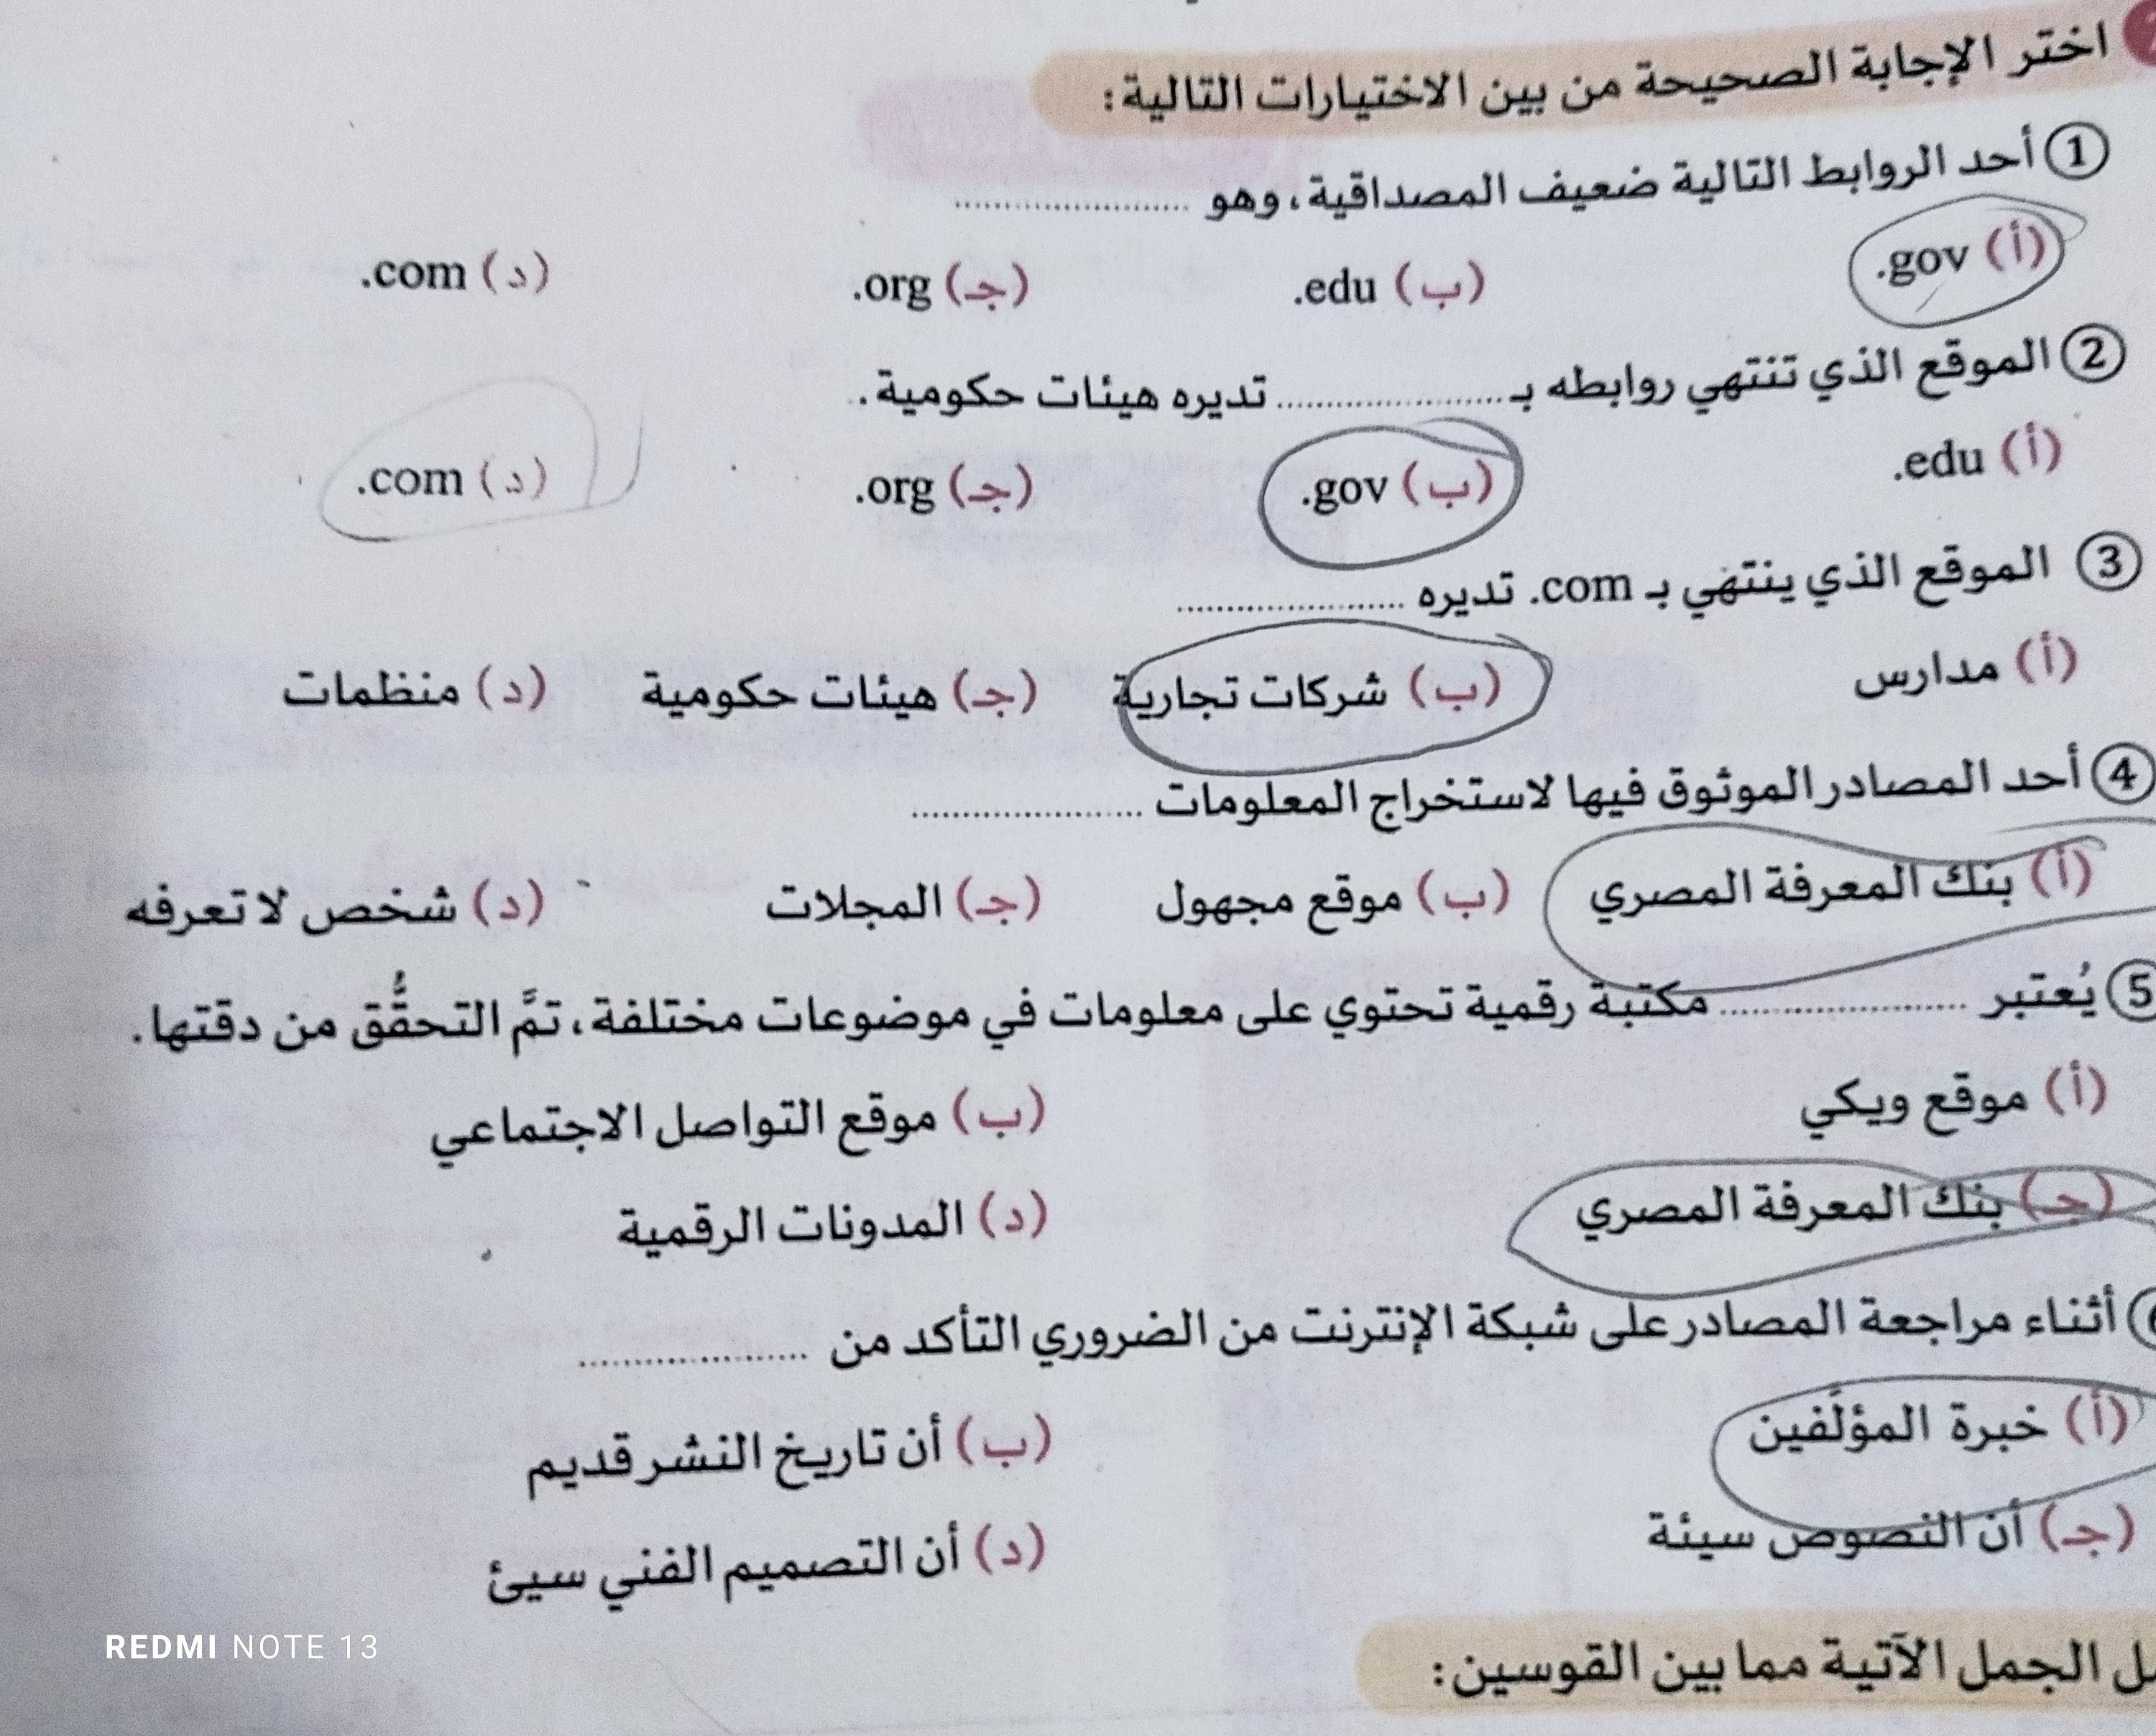 اختر الإجابة الصحيحة من بين الاختيارات التالية:
1 أحد الروابط التالية ضعيف المصداقية، وهو ......................
(أ) gov. (ب) edu. (جـ) org. (د) com.
2 الموقع الذي تنتهي روابطه بـ ...................... تديره هيئات حكومية.
(أ) edu. (ب) gov. (جـ) org. (د) com.
3 الموقع الذي ينتهي بـ com. تديره ......................
(أ) مدارس (ب) شركات تجارية (جـ) هيئات حكومية (د) منظمات
4 أحد المصادر الموثوق فيها لاستخراج المعلومات ......................
(أ) بنك المعرفة المصري (ب) موقع مجهول (جـ) المجلات (د) شخص لا تعرفه
5 يُعتبر ...................... مكتبة رقمية تحتوي على معلومات في موضوعات مختلفة، تمَّ التحقُّق من دقتها.
(أ) موقع ويكي (ب) موقع التواصل الاجتماعي
(جـ) بنك المعرفة المصري (د) المدونات الرقمية
أثناء مراجعة المصادر على شبكة الإنترنت من الضروري التأكد من ......................
(أ) خبرة المؤلِّفين (ب) أن تاريخ النشر قديم
(جـ) أن النصوص سيئة (د) أن التصميم الفني سيئ
الجمل الآتية مما بين القوسين:
REDMI NOTE 13